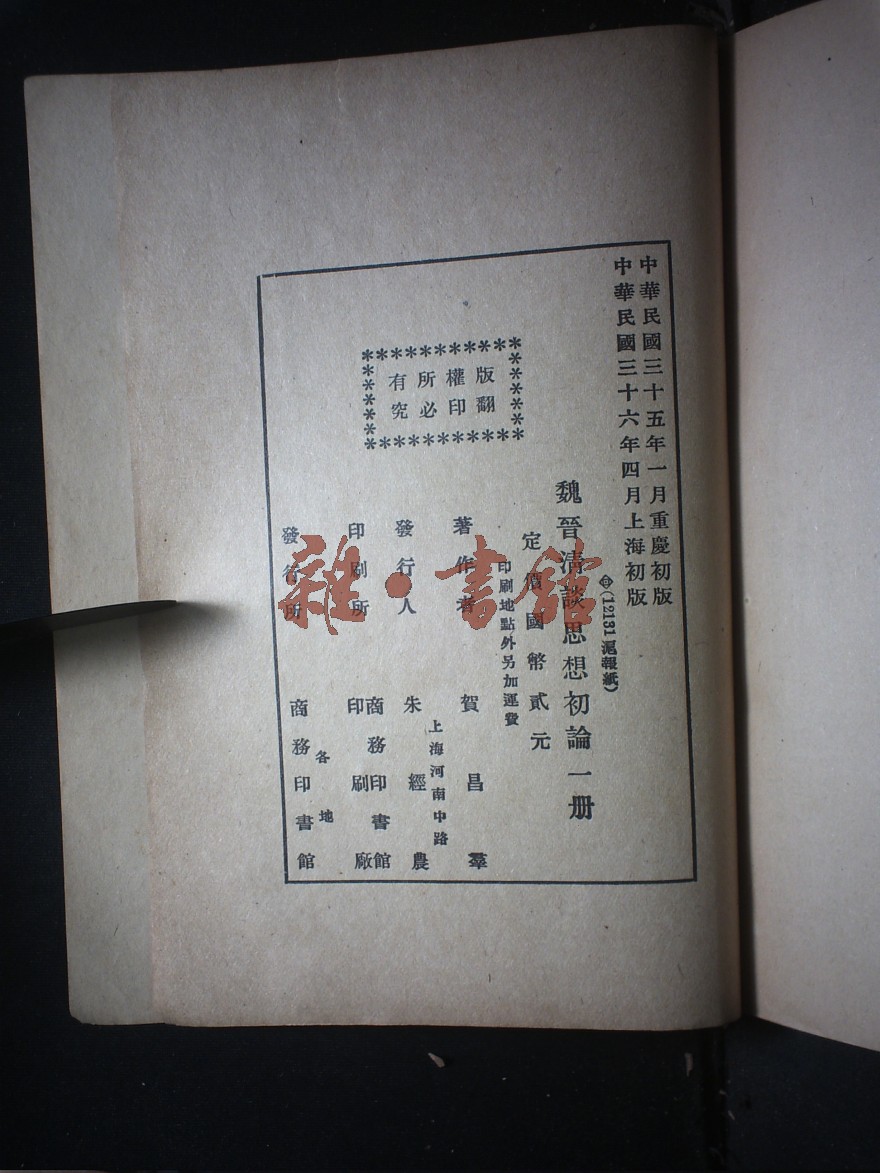 中華民國三十五年一月重慶初版
中華民國三十六年四月上海初版
(12131 滬報紙)
魏晉清談思想初論一册
定價國幣貳元
印刷地點外另加運費
版權所有
翻印必究
著作者 賀昌羣
上海河南中路
發行人 朱經農
印刷所 商務印書館
印刷廠
各地
發行所 商務印書館
雜·書館